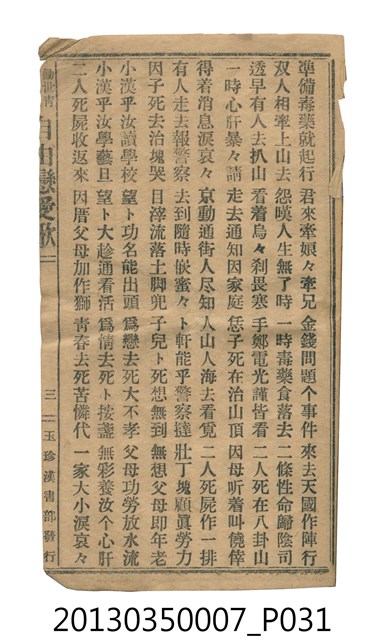 準備毒藥就起行 君來牽娘々牽兄 金錢問題个事件 來去天國作陣行
双人相牽上山去 怨嘆人生無了時 一時毒藥食落去 二條性命歸陰司
透早有人去扒山 看着烏々刹畏寒 手鄉電光謹皆看 二人死在八卦山
一時心肝暴々請 走去通知因家庭 恁子死在治山頂 因母听着叫僥倖
得着消息淚哀々 京動通街人尽知 人山人海去看覓 二人死屍作一排
有人走去報警察 去到隨時嵌蜜々 卜軒能乎警察撻 壯丁塊顧眞勞力
因子死去治塊哭 目滓流落土脚兜 子兒卜死想無到 無想父母即年老
小漢乎汝讀學校 望卜功名能出頭 爲戀去死大不孝 父母功勞放水流
小漢乎汝學藝旦 望卜大趁通看活 爲情去死卜按盞 無彩養汝个心肝
二人死屍收返來 因厝父母加作獅 青春去死苦憐代 一家大小淚哀々
勸世青
自由戀愛歌
三
玉珍漢書部發行
20130350007_P031